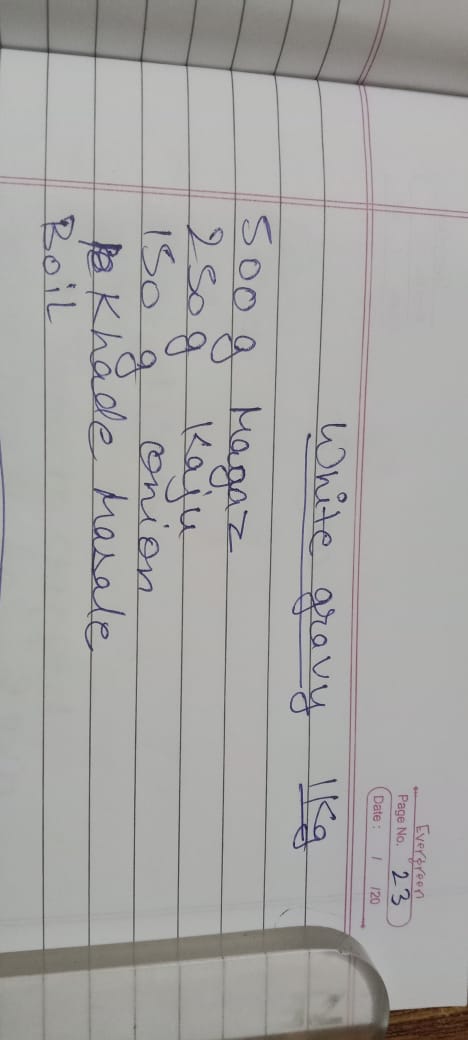 Evergreen
Page No. 23
Date: / /20
White gravy 1Kg
500 g Magaz
250 g Kaju
150 g onion
Khade Masale
Boil